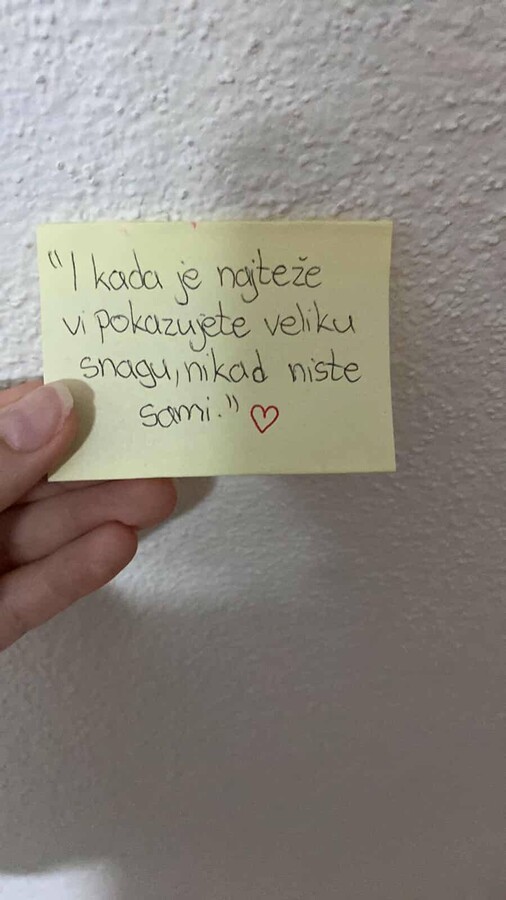 "I kada je najteže
vi pokazujete veliku
snagu, nikad niste
sami." ♡